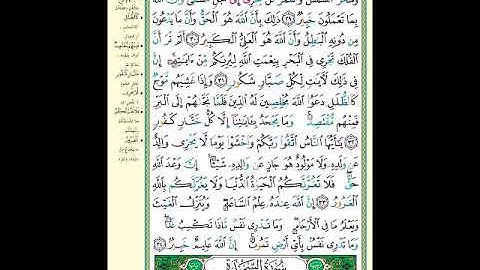 وَسَخَّرَ الشَّمْسَ وَالْقَمَرَ كُلٌّ يَجْرِي إِلَىٰ أَجَلٍ مُّسَمًّى وَأَنَّ اللَّهَ
بِمَا تَعْمَلُونَ خَبِيرٌ ﴿٢٩﴾ ذَٰلِكَ بِأَنَّ اللَّهَ هُوَ الْحَقُّ وَأَنَّ مَا يَدْعُونَ
مِن دُونِهِ الْبَاطِلُ وَأَنَّ اللَّهَ هُوَ الْعَلِيُّ الْكَبِيرُ ﴿٣٠﴾ أَلَمْ تَرَ أَنَّ
الْفُلْكَ تَجْرِي فِي الْبَحْرِ بِنِعْمَتِ اللَّهِ لِيُرِيَكُم مِّنْ آيَاتِهِ إِنَّ
فِي ذَٰلِكَ لَآيَاتٍ لِّكُلِّ صَبَّارٍ شَكُورٍ ﴿٣١﴾ وَإِذَا غَشِيَهُم مَّوْجٌ
كَالظُّلَلِ دَعَوُا اللَّهَ مُخْلِصِينَ لَهُ الدِّينَ فَلَمَّا نَجَّاهُمْ إِلَى الْبَرِّ
فَمِنْهُم مُّقْتَصِدٌ وَمَا يَجْحَدُ بِآيَاتِنَا إِلَّا كُلُّ خَتَّارٍ كَفُورٍ
﴿٣٢﴾ يَا أَيُّهَا النَّاسُ اتَّقُوا رَبَّكُمْ وَاخْشَوْا يَوْمًا لَّا يَجْزِي وَالِدٌ
عَن وَلَدِهِ وَلَا مَوْلُودٌ هُوَ جَازٍ عَن وَالِدِهِ شَيْئًا إِنَّ وَعْدَ اللَّهِ
حَقٌّ فَلَا تَغُرَّنَّكُمُ الْحَيَاةُ الدُّنْيَا وَلَا يَغُرَّنَّكُم بِاللَّهِ
الْغَرُورُ ﴿٣٣﴾ إِنَّ اللَّهَ عِندَهُ عِلْمُ السَّاعَةِ وَيُنَزِّلُ الْغَيْثَ
وَيَعْلَمُ مَا فِي الْأَرْحَامِ وَمَا تَدْرِي نَفْسٌ مَّاذَا تَكْسِبُ غَدًا
وَمَا تَدْرِي نَفْسٌ بِأَيِّ أَرْضٍ تَمُوتُ إِنَّ اللَّهَ عَلِيمٌ خَبِيرٌ ﴿٣٤﴾
سُورَةُ السَّجْدَةِ